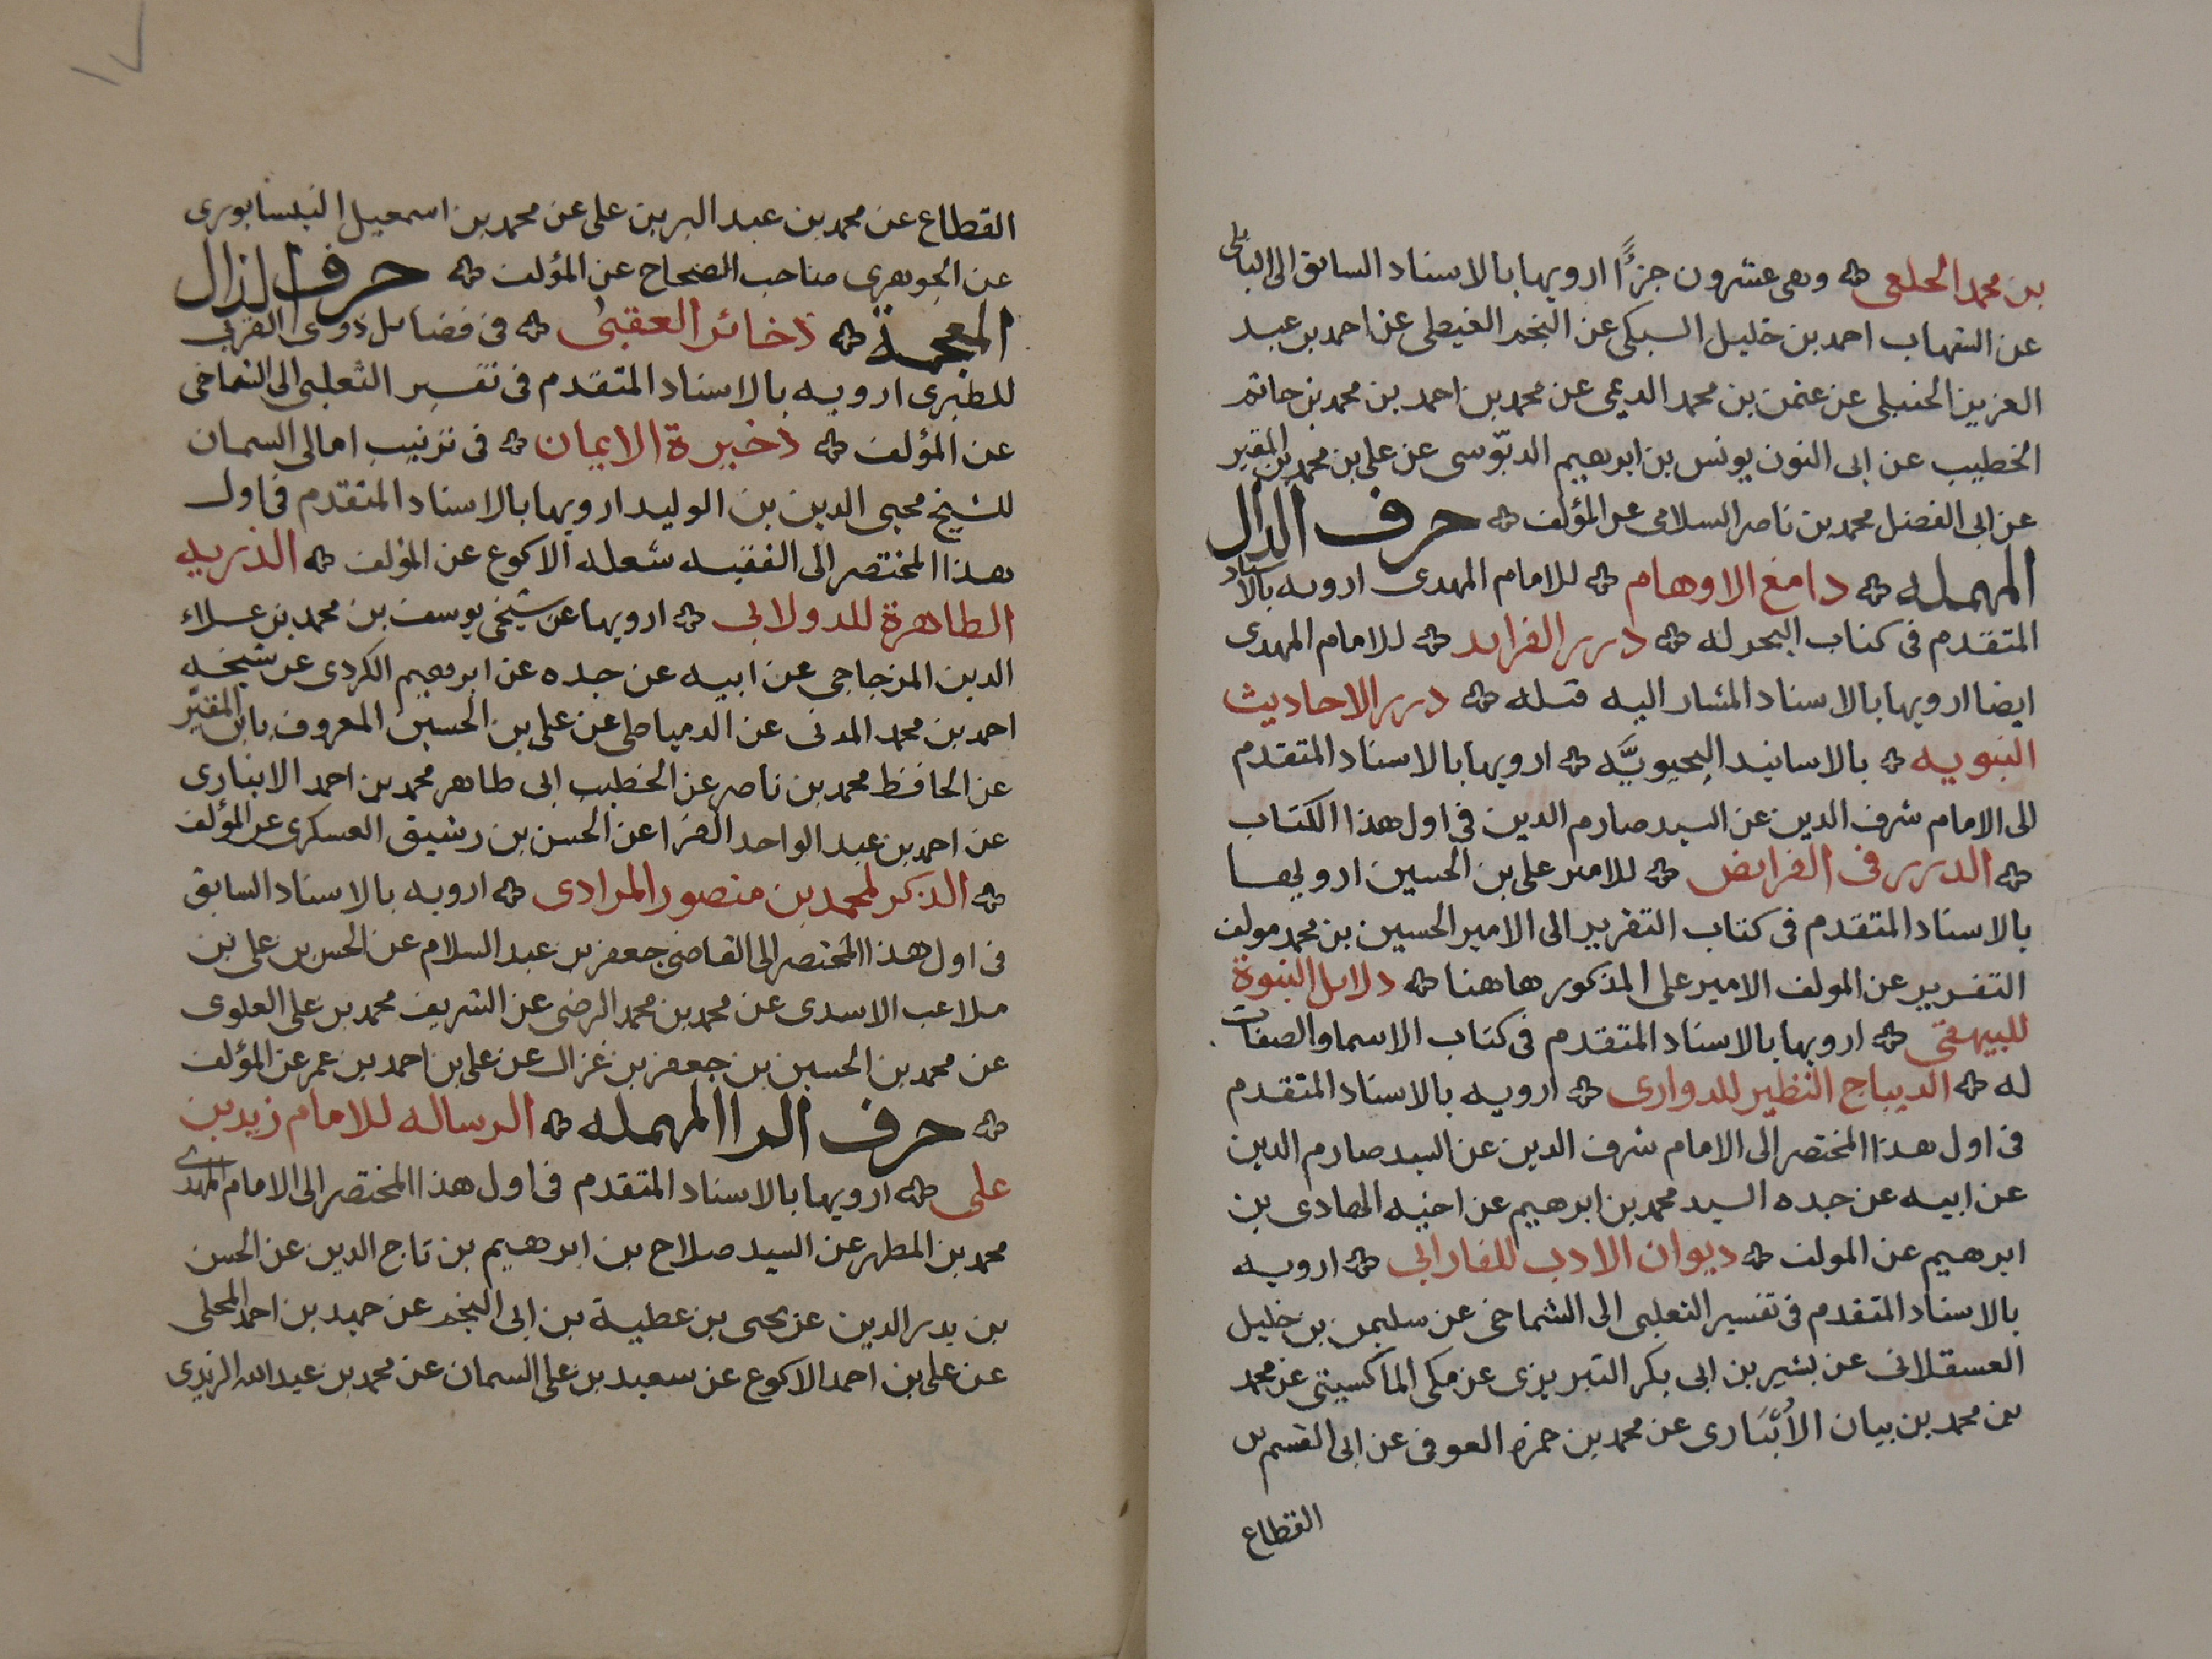 بن محمد الخلعى ۞ وهى عشرون جزءًا ارويها بالاسناد السابق الى البابلى
عن الشهاب احمد بن خليل السبكى عن النجم الغيطى عن احمد بن عبد
العزيز الحنبلى عن عثمن بن محمد الديمى عن محمد بن احمد بن محمد بن حاتم
الخطيب عن ابى النون يونس بن ابرهيم الدبّوسى عن على بن محمد بن المقير
عن ابى الفضل محمد بن ناصر السلامى عن المؤلف ۞ حرف الدال
المهمله ۞ دامغ الاوهام ۞ للامام المهدى ارويه بالاسناد
المتقدم فى كتاب البحر له ۞ درر الفرايد ۞ للامام المهدى
ايضا ارويها بالاسناد المشار اليه قبله ۞ درر الاحاديث
النبويه ۞ بالاسانيد اليحيويَّه ۞ ارويها بالاسناد المتقدم
الى الامام شرف الدين عن السيد صارم الدين فى اول هذا الكتاب
۞ الدرر فى الفرايض ۞ للامير على بن الحسين ارويها
بالاسناد المتقدم فى كتاب التقرير الى الامير الحسين بن محمد مولف
التقرير عن المولف الامير على المذكور هاهنا ۞ دلايل النبوة
للبيهقى ۞ ارويها بالاسناد المتقدم فى كتاب الاسما والصفات
له ۞ الديباج النظير للدوارى ۞ ارويه بالاسناد المتقدم
فى اول هذا المختصر الى الامام شرف الدين عن السيد صارم الدين
عن ابيه عن جده السيد محمد بن ابرهيم عن اخيه الهادى بن
ابرهيم عن المولف ۞ ديوان الادب للفارابى ۞ ارويه
بالاسناد المتقدم فى تفسير الثعلبى الى الشماخى عن سليمن بن خليل
العسقلانى عن بشير بن ابى بكر التبريزى عن مكى الماكسيتى عن محمد
بن محمد بن بيان الأُنْبَارى عن محمد بن حمزه العوفى عن ابى القسم بن
القطاع
القطاع عن محمد بن عبد البر بن على عن محمد بن اسمعيل النيسابورى
عن الجوهرى صاحب الصحاح عن المؤلف ۞ حرف الذال
المعجمة ۞ ذخائر العقبى ۞ فى فضايل ذوى القربى
للطبرى ارويه بالاسناد المتقدم فى تفسير الثعلبى الى الشماخى
عن المؤلف ۞ ذخيرة الايمان ۞ فى ترتيب امالى السمان
للشيخ محيى الدين بن الوليد ارويها بالاسناد المتقدم فى اول
هذا المختصر الى الفقيه شعله الاكوع عن المؤلف ۞ الذريه
الطاهرة للدولابى ۞ ارويها عن شيخى يوسف بن محمد بن علاء
الدين المزجاجى عن ابيه عن جده عن ابرهيم الكردى عن شيخه
احمد بن محمد المدنى عن الدمياطى عن على بن الحسين المعروف بابن المقيّر
عن الحافظ محمد بن ناصر عن الخطيب ابى طاهر محمد بن احمد الانبارى
عن احمد بن عبد الواحد الفرا عن الحسن بن رشيق العسكرى عن المؤلف
۞ الذكر لمحمد بن منصور المرادى ۞ ارويه بالاسناد السابق
فى اول هذا المختصر الى القاضى جعفر بن عبد السلام عن الحسن بن على بن
ملاعب الاسدى عن محمد بن محمد الرضى عن الشريف محمد بن على العلوى
عن محمد بن الحسين بن جعفر بن غزال عن على بن احمد بن عمر عن المؤلف
۞ حرف الرا المهمله ۞ الرساله للامام زيد بن
على ۞ ارويها بالاسناد المتقدم فى اول هذا المختصر الى الامام المهدى
محمد بن المطهر عن السيد صلاح بن ابرهيم بن تاج الدين عن الحسن
بن بدر الدين عن يحيى بن عطية بن ابى النجم عن حميد بن احمد المحلى
عن على بن احمد الاكوع عن سعيد بن على السمان عن محمد بن عبد الله الزيدى
١٧